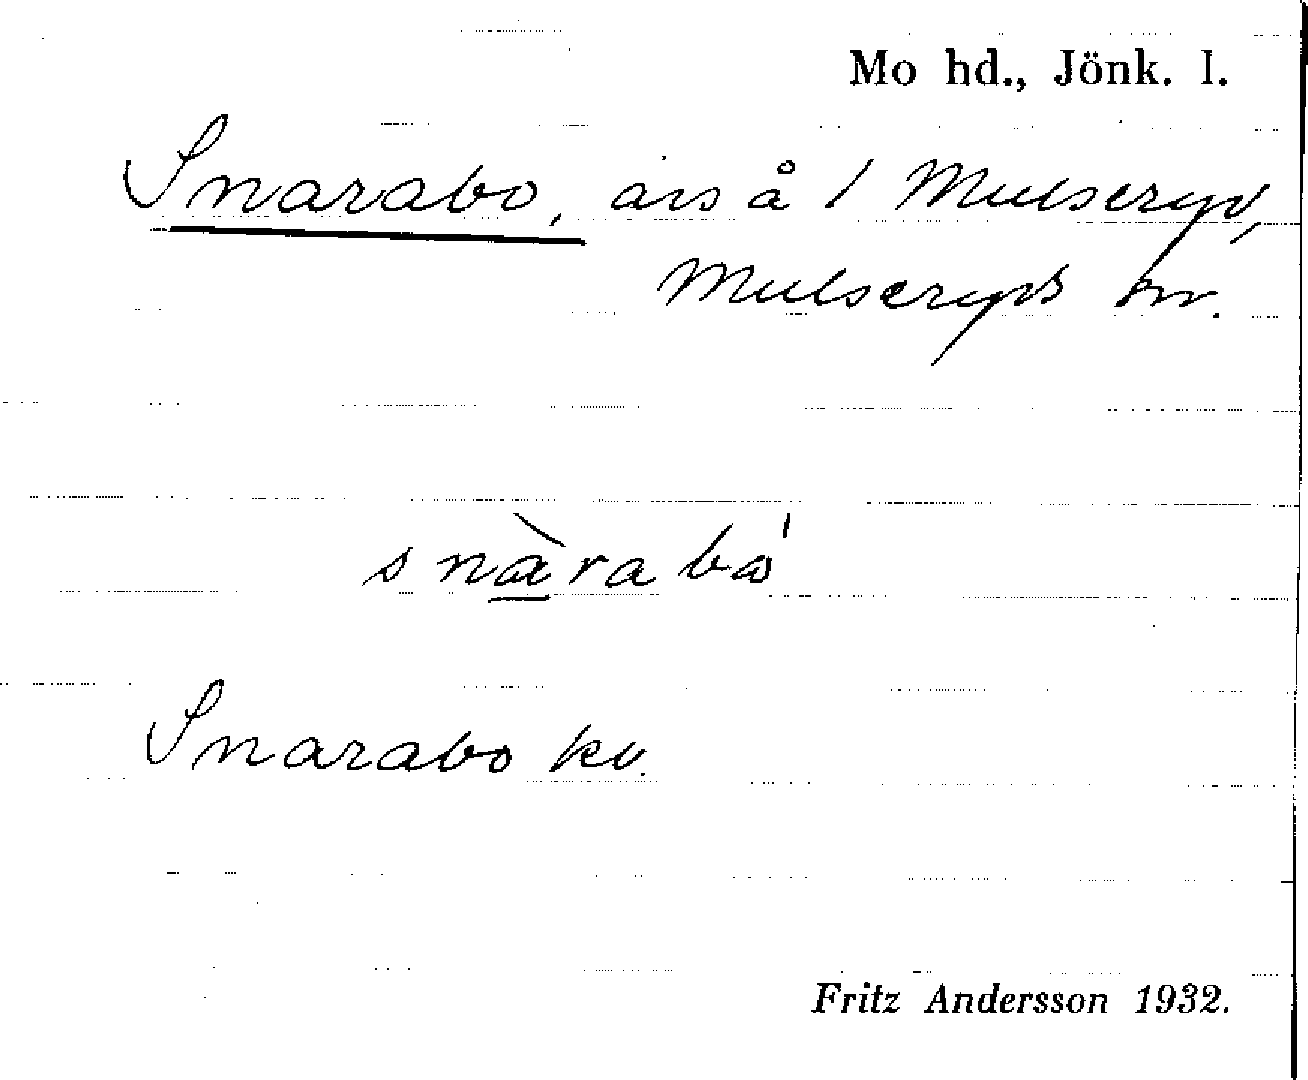 Mo hd., Jönk. l.
Snarabo, avs å 1 Mulseryd,
Mulseryds sn.
snàrabo
Snarabo kv.
Fritz Andersson 1932.